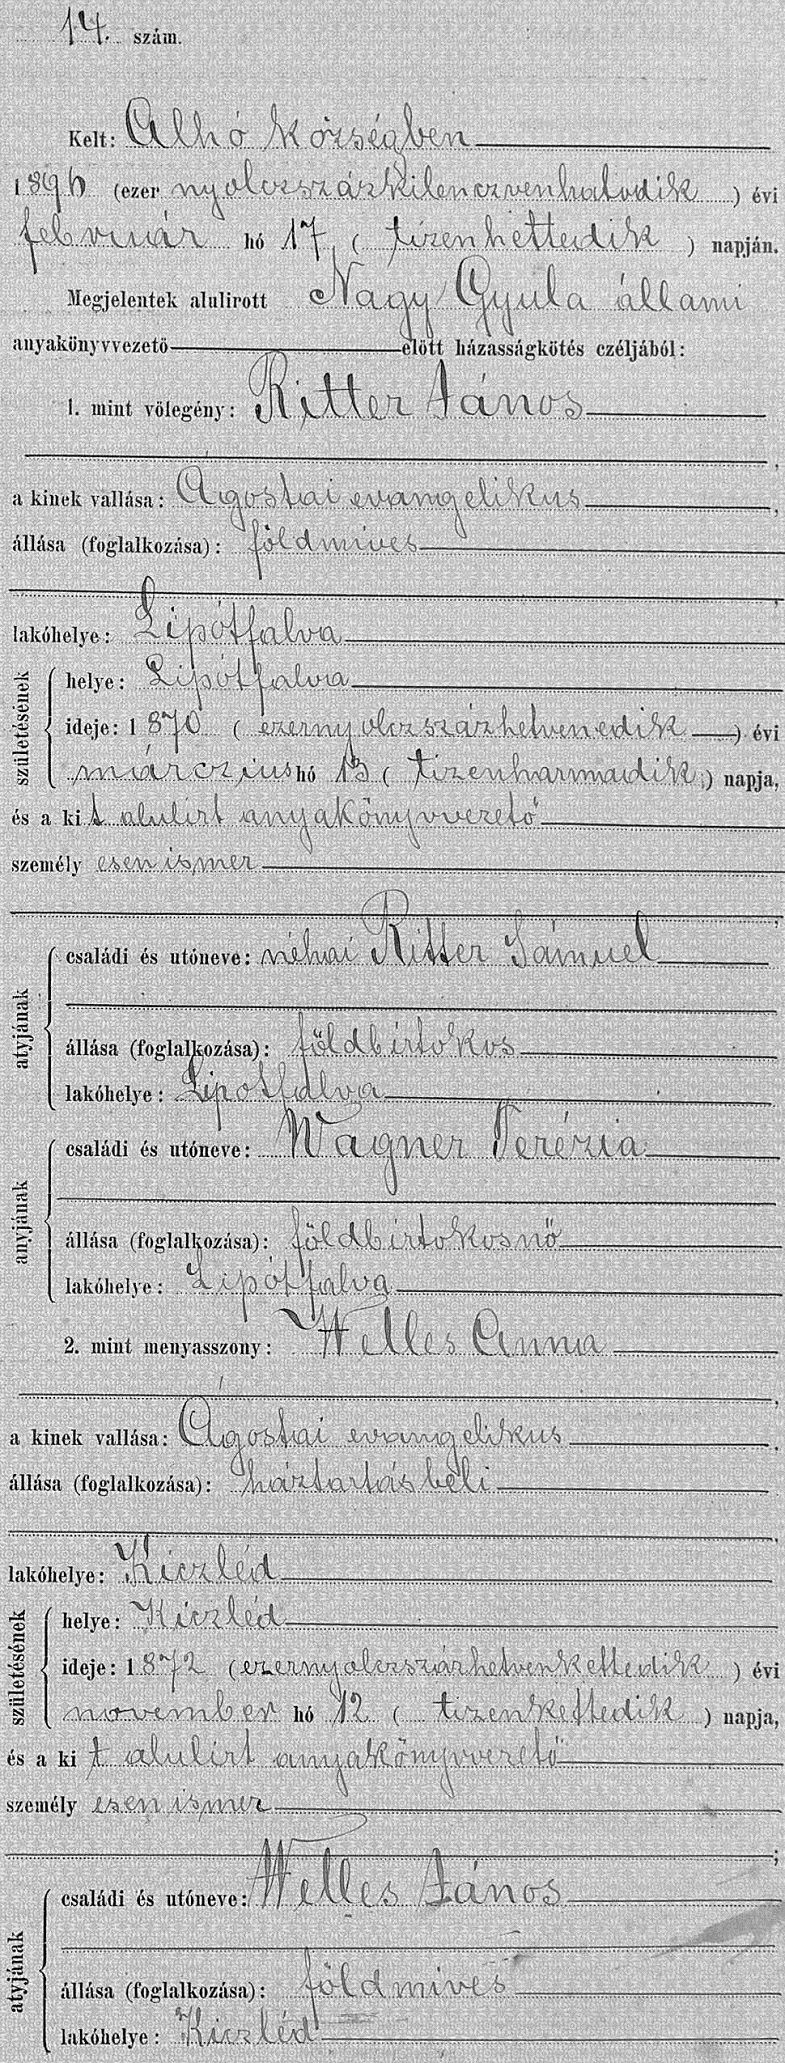 14. szám.
Kelt: Alhó községben
1896 (ezer nyolczszázkilenczvenhatodik) évi
február hó 17 (tizenhettedik) napján.
Megjelentek alulirott Nagy Gyula állami
anyakönyvvezető előtt házasságkötés czéljából:
1. mint vőlegény: Ritter János
a kinek vallása: Ágostai evangelikus
állása (foglalkozása): földmives
lakóhelye: Lipótfalva
születésének
helye: Lipótfalva
ideje: 1870 (ezernyolczszázhetvenedik) évi
márczius hó 13 (tizenharmadik) napja,
és a kit alulirt anyakönyvvezető
személyesen ismer
atyjának
családi és utóneve: néhai Ritter Sámuel
állása (foglalkozása): földbirtokos
lakóhelye: Lipotfalva
anyjának
családi és utóneve: Wagner Terézia
állása (foglalkozása): földbirtokosnő
lakóhelye: Lipótfalva
2. mint menyasszony: Welles Anna
a kinek vallása: Ágostai evangelikus
állása (foglalkozása): háztartásbeli
lakóhelye: Kiczléd
születésének
helye: Kiczléd
ideje: 1872 (ezernyolczszázhetvenkettedik) évi
november hó 12 (tizenkettedik) napja,
és a kit alulirt anyakönyvvezető
személyesen ismer
atyjának
családi és utóneve: Welles János
állása (foglalkozása): földmives
lakóhelye: Kiczléd